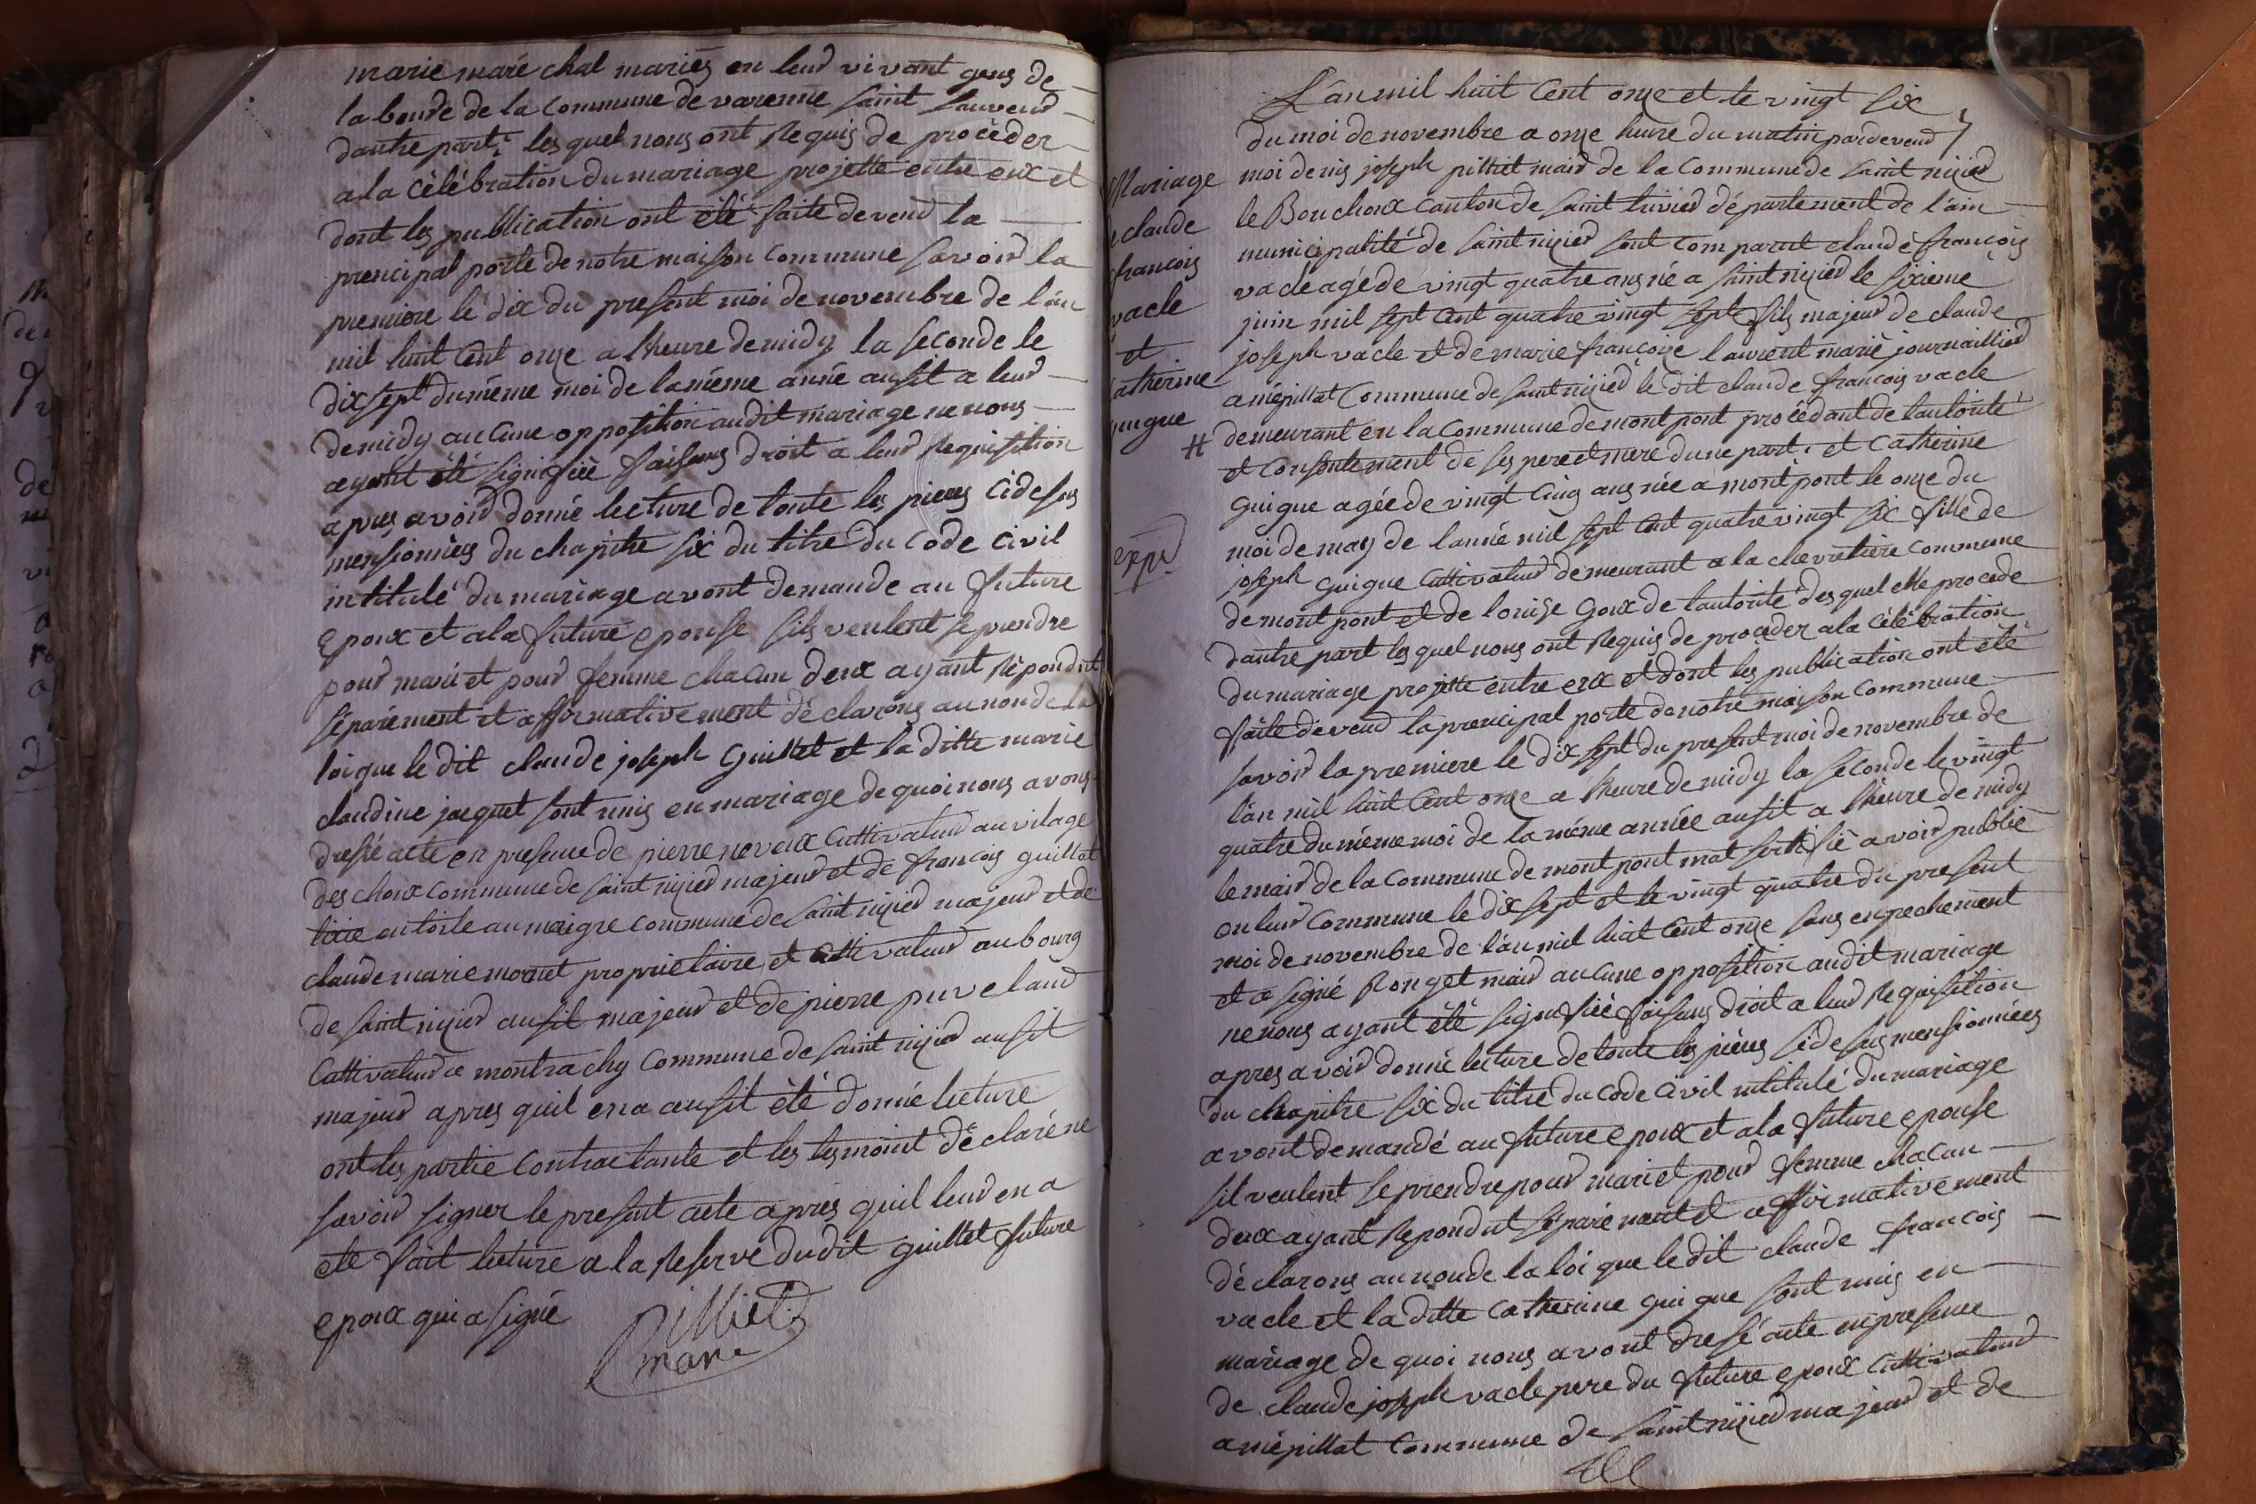 marie maréchal mariés en leur vivant gens de
la boure de la commune de varenne saint sauveur
dautre part; les quel nous ont Requis de procèder
a la cèlébration du mariage projetté entre eux et
dont les publication ont été faite devend la
prencipal porte de notre maison commune savoir la
premiere le dix du present moi de novembre de l'an
mil huit Cent onze a l'heure de midy la seconde le
dix sept du même moi de la même anné ausit a leur
de midy aucune opposition audit mariage ne nous
ayant été signifiée faisans droit a leur Requisition
apres avoir donné lecture de toute les pieces Cidesus
mensionnées du chapitre six du titre du Code Civil
intitulé du mariage avont demande au future
epoux et a la future epouse sils veulent se prendre
pour mari et pour femme chacun deux ayant Répondut
séparément et affirmativement déclarons au nonde la
loi que le dit claude joseph Guillet et la ditte marie
claudine jacquet sont unis en mariage de quoi nous avons
dressé acte en presence de pierre neveux Cultivateur au vilage
des choux commune de saint nizier majeur et de françois guillat
en toile au maigre commune de saint nizier majeur et de
claude marie monet proprietaire et Cultivateur au bourg
de saint nizier ausit majeur et de pierre puveland
Cultivateur a montrachy Commune de saint nizier ausit
majeur apres quil en a ausit été donné lecture
ont les partie Contractante et les tesmoint déclaré ne
savoir signer le present acte apres quil leur en a
ete fait lecture a la Reserve dudit guillet future
epoux qui a signé
Pilliet
maire
L'an mil huit Cent onze et le vingt six
du moi de novembre a onze heure du matin pardevend
moi denis joseph pilliet maire de la Commune de saint nizier
le Bouchoux canton de saint trivier département de l'ain
municipalité de saint nizier sont comparut claude françois
vacle agé de vingt quatre ans né a saint nizier le sixieme
juin mil sept Cent quatre vingt sept fils majeur de claude
joseph vacle et de marie françoise laurent marié journaillier
a mépillat Commune de saint nizier le dit claude françois vacle
demeurant en la Commune de montpont procédant de l'autorité
et consentement de ses pere et mere dune part. et Catherine
Guigue agée de vingt Cinq ans née a montpont le onze du
moi de may de lanné mil sept Cent quatre vingt six fille de
joseph Guigue Cultivateur demeurant a la chevretière commune
de mont pont et de louise Goux de lautorité desquel elle procede
dautre part les quel nous ont Requis de proceder a la Célébration
du mariage projetté entre eux et dont les publication ont été
faite devend la prencipal porte de notre maison commune
savoir la premiere le dix sept du present moi de novembre de
l'an mil huit Cent onze a l'heure de midy la seconde le vingt
quatre du même moi de la même année ausit a l'heure de midy
le maire de la Commune de montpont mat sertifié avoir publié
en leur commune le dix sept et le vingt quatre du present
moi de novembre de l'an mil huit Cent onze sans enpechement
et a signé Ronget maire aucune opposition audit mariage
ne nous ayant été signifiée faisans droit a leur Requisition
apres avoir donné lecture de toute les pièces sidesus mensionnées
du chapitre six du titre du Code Civil intitulé du mariage
avont demandé au future epoux et a la future epouse
sil veulent se prendre pour mari et pour femme chacun
deux ayant Repondut séparément et affirmativement
déclarons au nonde la loi que le dit claude françois
vacle et la ditte Catherine Guigue sont unis en
mariage de quoi nous avont dressé acte en presence
de claude joseph vacle pere du future epoux Cultivateur
a mépillat Commune de saint nizier majeur et de
Mariage
claude
françois
vacle
et
Catherine
guigue